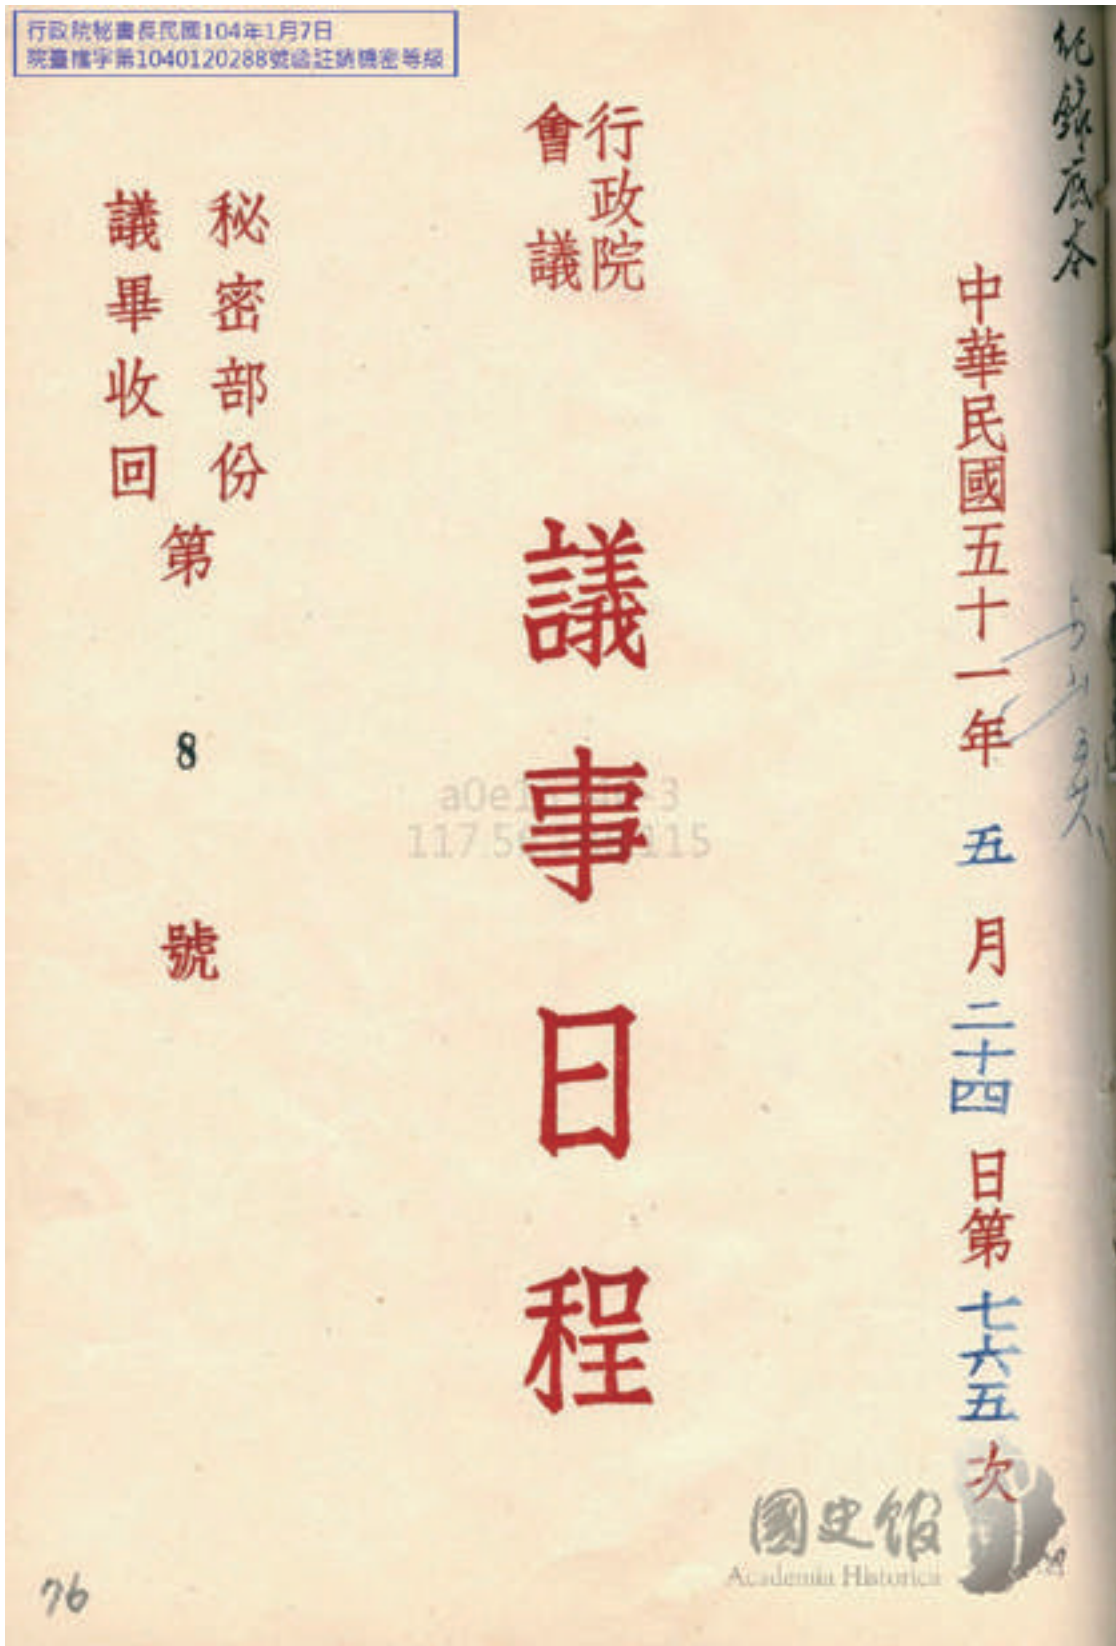 行政院秘書長民國104年1月7日
院臺檔字第1040120288號函註銷機密等級
紀錄底本
中華民國五十一年五月二十四日第七六五次
行政院
會議
議事日程
秘密部份
議畢收回
第8號
76
國史館
Academia Historica